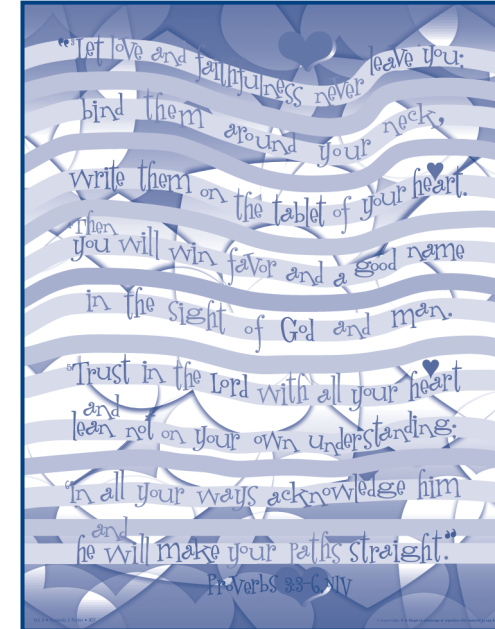 "³Let love and faithfulness never leave you;
bind them around your neck,
write them on the tablet of your heart.
⁴Then
you will win favor and a good name
in the sight of God and man.
⁵Trust in the Lord with all your heart
and
lean not on your own understanding;
⁶in all your ways acknowledge him
and
he will make your paths straight."
Proverbs 3:3–6, NIV